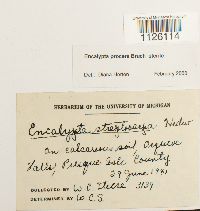 1126114
Encalypta procera Bruch sterile
Det.: Diana Horton February 2000
HERBARIUM OF THE UNIVERSITY OF MICHIGAN
Encalypta streptocarpa Hedw
On calcareous soil, Ocqueoc
Falls, Presque Isle County
29 June 1941
COLLECTED BY W. C. Steere
DETERMINED BY W C S.